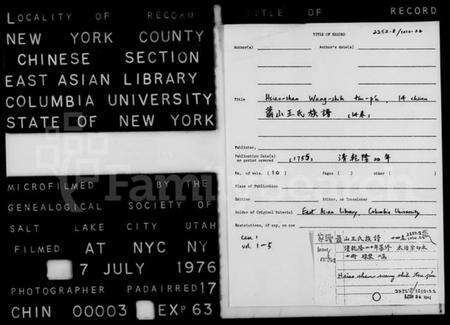 LOCALITY OF RECORD
NEW YORK COUNTY
CHINESE SECTION
EAST ASIAN LIBRARY
COLUMBIA UNIVERSITY
STATE OF NEW YORK
MICROFILMED BY THE
GENEALOGICAL SOCIETY OF
SALT LAKE CITY UTAH
FILMED AT NYC NY
7 JULY 1976
PHOTOGRAPHER PADAIRRED 17
CHIN 00003 EXP 63
TITLE OF RECORD
TITLE OF RECORD
Author(s)
Author's date(s)
Title Hsiao-shan Wang-shih tsu-p'u, 14 chüan
蕭山王氏族譜 (14卷)
Publisher,
Publication Date(s)
or period covered (1755) 清乾隆20年
No. of vols. (10) Pages ( ) Other ( )
Place of Publication
Edition
Holder of Original Material East Asian Library, Columbia University
Restrictions, if any, on use
vol. 1-5
山王氏族譜
Hsiao shan wang shih tsu p'u